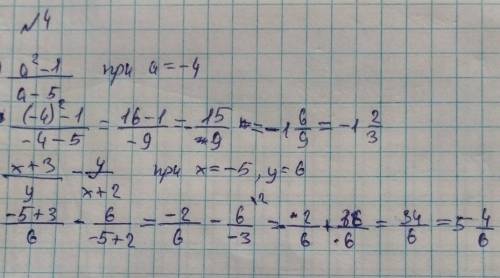 №4
) a²-1 / a-5 при a=-4
(-4)²-1 / -4-5 = 16-1 / -9 = 15 / -9 = -1 6/9 = -1 2/3
x+3 / y - y / x+2 при x=-5, y=6
-5+3 / 6 - 6 / -5+2 = -2 / 6 - 6 / -3 \2 = -2 / 6 + 36 / 6 = 34 / 6 = 5 4/6